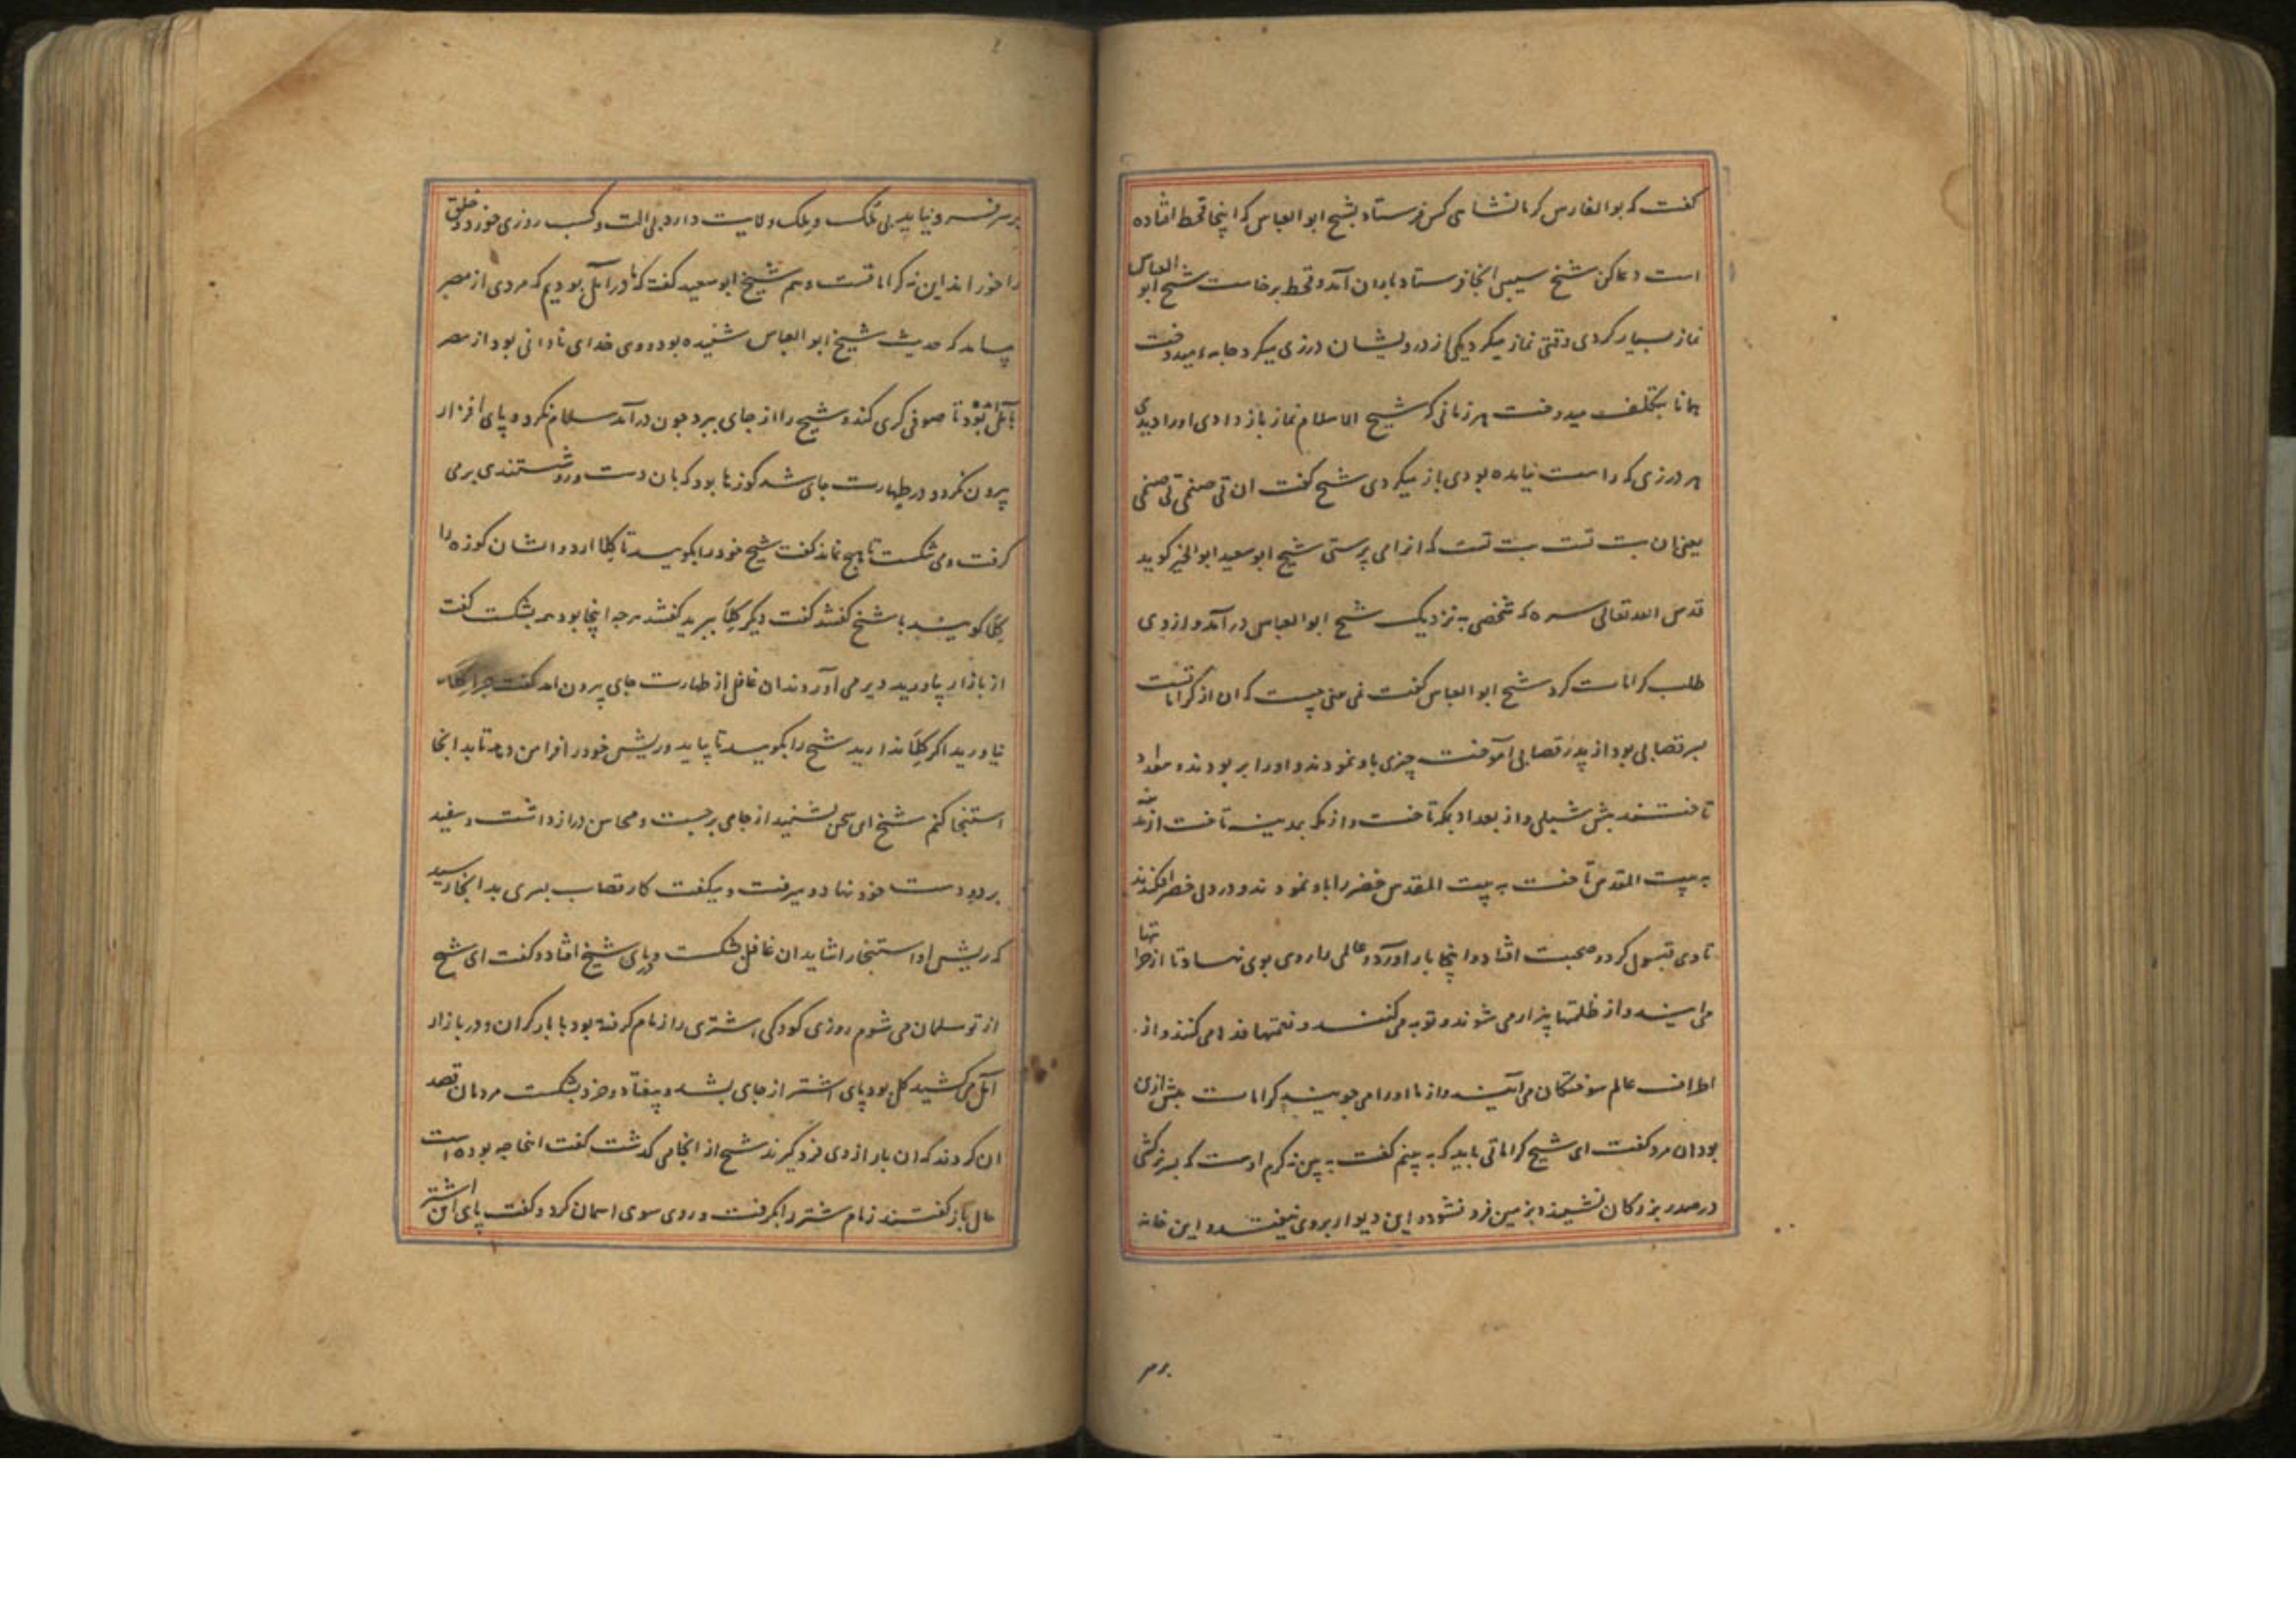 کفت که بوالفارس کرمانشاهی کس فرستاد بشیخ ابوالعباس که اینجا قحط افتاده
است دعا کن شیخ سیبی انجا فرستاد باران آمد و قحط برخاست شیخ ابو العباس
نماز بسیار کردی وقتی نماز میکرد یکی از درویشان درزی میکرد جامه میدوخت
همانا بتکلف میدوخت هر زمانی که شیخ السلام نماز باز دادی او را دیدی
هر درزی که راست نیامده بودی باز میکردی شیخ کفت ان تی صنمی تی صنمی
یعنی ان بت تست بت تست که انرا می پرستی شیخ ابوسعید ابوالخیر کوید
قدس الله تعالی سره که شخصی به نزدیک شیخ ابوالعباس درآمد و از وی
طلب کرامات کرد شیخ ابوالعباس کفت نمی بینی چیست که ان از کرامات نیست
پسر قصابی بود از پدر قصابی آموخت چیزی باو نمودند و او را بربودند و ببغداد
تاختند پیش شبلی و از بغداد بمکه تاخت و از مکه بمدینه تاخت از مدینه
به بیت المقدس تاخت به بیت المقدس خضر را باو نمودند و در دل خضر افکندند
تا وی قبول کرد و صحبت افتاد و اینجا باز آورد و عالمی را روی بوی نهاد تا از خراباتها
می ایند و از ظلمتها بیزار می شوند و توبه می کنند و نعمتها فدا می کنند و از
اطراف عالم سوختکان می آیند و از ما او را می جویند کرامات بیش ازین
بود ان مرد کفت ای شیخ کراماتی باید که به بینم کفت به بین نه کرم اوست که پسر بزکشی
در صدر بزرکان نشیند و بزمین فرو نشود و این دیوار بروی نیفتد و این خانه
بر سر
بر سر فرو نیاید بی ملک و ملک ولایت دارد بی الت و کسب روزی خورد و خلق
را خوراند این نه کراماتست و هم شیخ ابوسعید کفت که ما در آمل بودیم که مردی از مصر
بیامد که حدیث شیخ ابوالعباس شنیده بود و وی خدای نادانی بود از مصر
بآمل آمده بود تا صوفی کری کند و شیخ را از جای ببرد چون درآمد سلام نکرد و پای افزار
بیرون نکرد و در طهارت جای شد کوزها بود که بان دست و رو شستندی بر می
کرفت و می شکست تا هیچ نماند کفت شیخ خود را بکویید تا کلا ارد و ایشان کوزه را
کلا کویند با شیخ کفتند کفت دیکر کلا ببرید کفتند هرچه اینجا بود همه بشکست کفت
از بازار بیاورید دیر می آوردند ان غافل از طهارت جای بیرون امد کفت چرا کلا
نیاورید اکر کلا ندارید شیخ را بکویید تا بیاید و ریش خود را فرا من دهد تا بدانجا
استنجا کنم شیخ این سخن بشنید از جای برجست و محاسن دراز داشت و سفید
بر دو دست خود نهاد و میرفت و میکفت کار قصاب پسری بدانجا رسید
که ریش او استنجا را شاید ان غافل بشکست و در پای شیخ افتاد و کفت ای شیخ
از تو مسلمان می شوم روزی کودکی اشتری را زمام کرفته بود با بار کران و در بازار
آمل می کشید کل بود پای اشتر از جای بشد و بیفتاد و خرد بشکست مردمان قصد
ان کردند که ان بار از وی فرو کیرند شیخ از انجا می کذشت کفت اینجا چه بوده است
حال باز کفتند زمام شتر را بکرفت و روی سوی اسمان کرد و کفت پای این اشتر